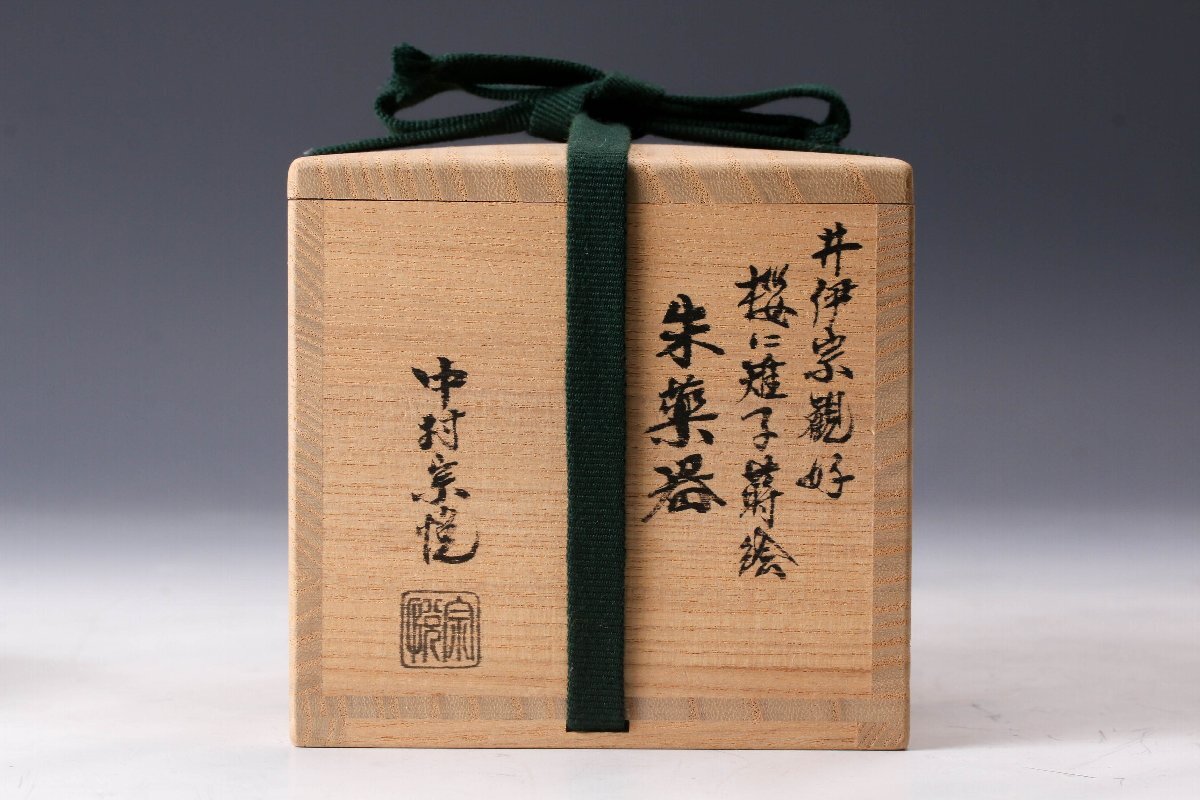 井伊宗観好
桜に雉子蒔絵
朱薬器
中村宗悦
宗悦